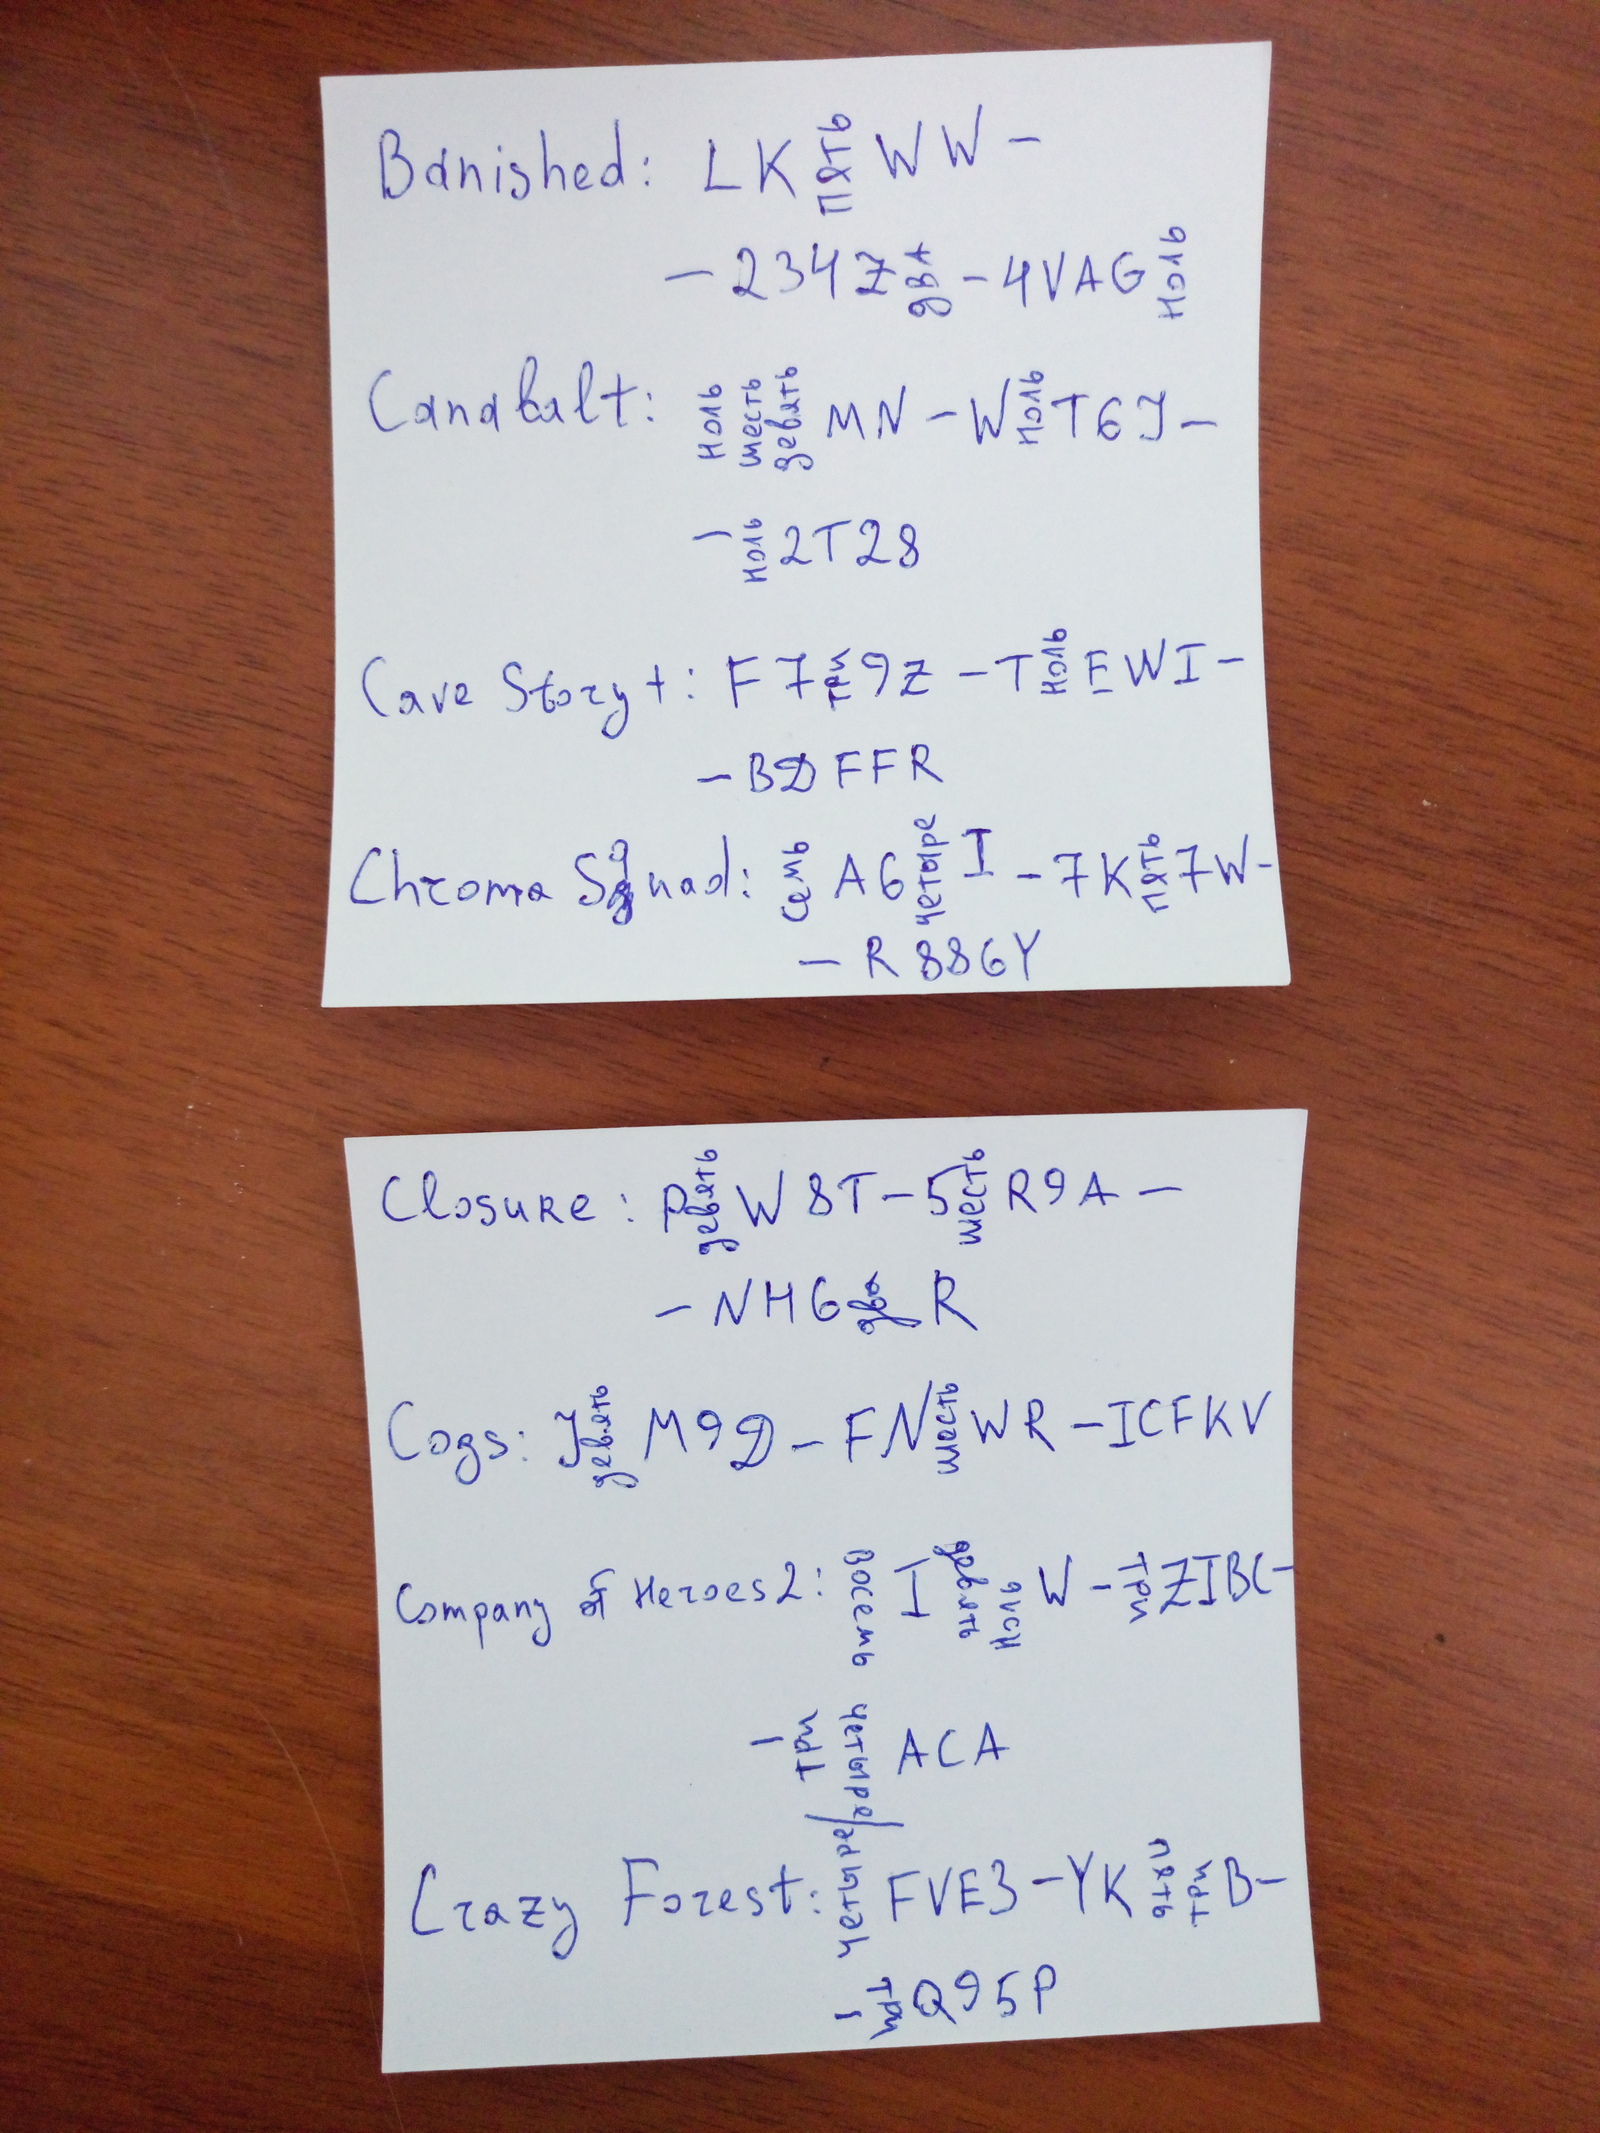 Banished: LK пять WW -
- 234Z два - 4VAG ноль
Canabalt: ноль шесть девять MN - W ноль T6J -
- ноль 2T28
Cave Story+: F7 три 9Z - T ноль EWI -
- BDFFR
Chroma Squad: семь A6 четыре I - 7K пять 7W -
- R886Y
Closure: P девять W8T - 5 шесть R9A -
- NH6 два R
Cogs: J девять M9D - FN шесть WR - ICFKV
Company of Heroes 2: восемь I девять ноль W - три ZIBC -
- три четыре ACA
Crazy Forest: четыре FVE3 - YK пять три B -
- три Q95P